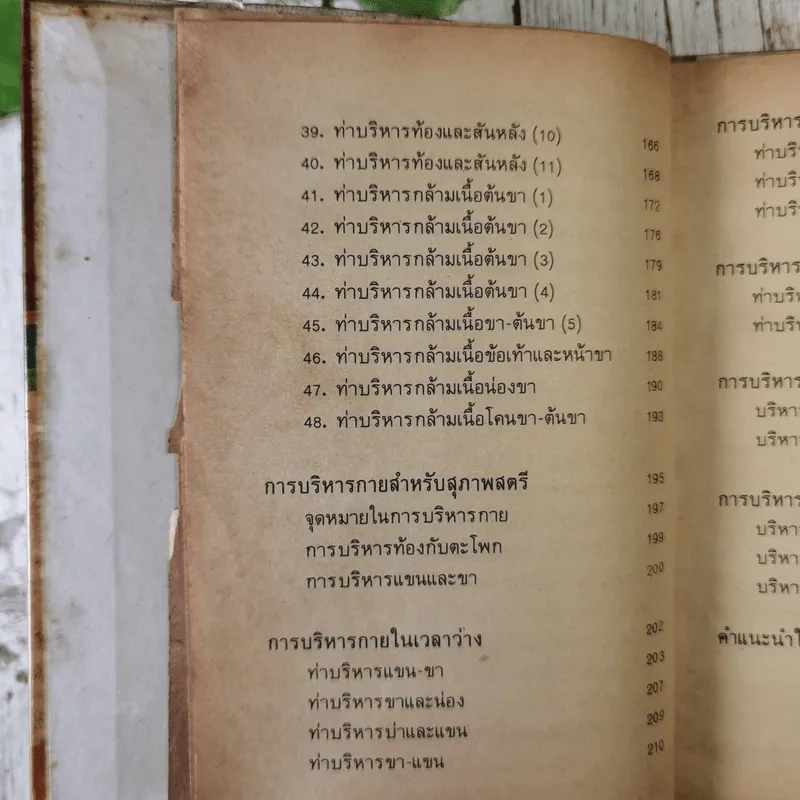 39. ท่าบริหารท้องและสันหลัง (10) 166
40. ท่าบริหารท้องและสันหลัง (11) 168
41. ท่าบริหารกล้ามเนื้อต้นขา (1) 172
42. ท่าบริหารกล้ามเนื้อต้นขา (2) 176
43. ท่าบริหารกล้ามเนื้อต้นขา (3) 179
44. ท่าบริหารกล้ามเนื้อต้นขา (4) 181
45. ท่าบริหารกล้ามเนื้อขา-ต้นขา (5) 184
46. ท่าบริหารกล้ามเนื้อข้อเท้าและหน้าขา 188
47. ท่าบริหารกล้ามเนื้อน่องขา 190
48. ท่าบริหารกล้ามเนื้อโคนขา-ต้นขา 193
การบริหารกายสำหรับสุภาพสตรี 195
จุดหมายในการบริหารกาย 197
การบริหารท้องกับตะโพก 199
การบริหารแขนและขา 200
การบริหารกายในเวลาว่าง 202
ท่าบริหารแขน-ขา 203
ท่าบริหารขาและน่อง 207
ท่าบริหารบ่าและแขน 209
ท่าบริหารขา-แขน 210
การบริหาร
ท่าบริ
ท่าบริ
ท่าบริ
การบริหาร
ท่าบริห
ท่าบริห
การบริหาร
บริหา
บริหา
การบริหาร
บริหา
บริหา
บริหา
คำแนะนำใ